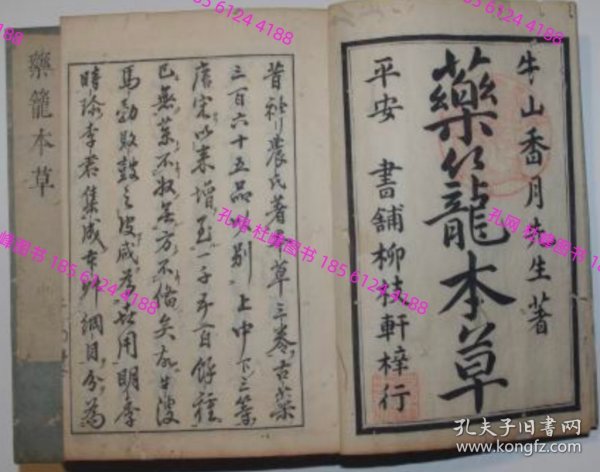 牛山香月先生著
藥籠本草
平安 書舗柳枝軒梓行
昔神農氏著本草三卷古藥
三百六十五品分別上中下三等
唐宋以来增至一千五百餘種
已無藥不收無方不備矣如牛溲
馬勃敗鼓之皮咸為世用明李
時珍李君集成本艸綱目分為
藥籠本草
孔网 杜峰图书 185 6124 4188
孔夫子旧书网
kongfz.com